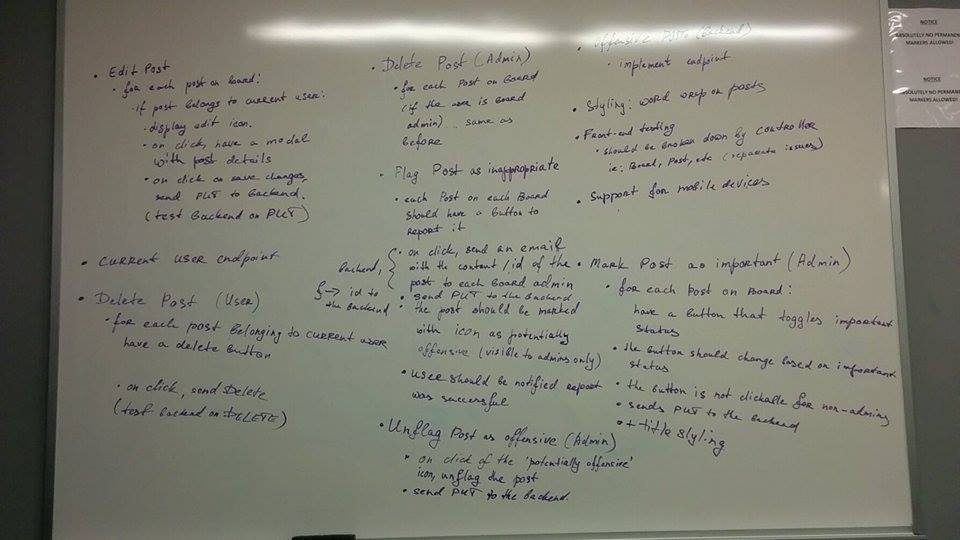 • Edit Post
• for each post on board:
• if post belongs to current user:
• display edit icon.
• on click, have a modal
with post details
• on click on save changes,
send PUT to backend.
(test backend on PUT)
• current user endpoint
• Delete Post (User)
• for each post belonging to current user
have a delete button
• on click, send Delete
(test backend on DELETE)
• Delete Post (Admin)
• for each Post on Board
(if the user is Board
admin)... same as
before
• Flag Post as inappropriate
• each Post on each Board
should have a button to
report it
backend,
→ id to
the backend
• on click, send an email
with the content/id of the
post to each board admin
• send PUT to the backend
• the post should be marked
with icon as potentially
offensive (visible to admins only)
• user should be notified report
was successful
• Unflag Post as offensive (Admin)
• on click of the 'potentially offensive'
icon, unflag the post
• send PUT to the backend.
• offensive Posts (Backend)
• implement endpoint
• Styling: word wrap on posts
• Front-end testing
• should be broken down by controller
ie: Board, Post, etc (separate issues)
• Support for mobile devices
• Mark Post as important (Admin)
• for each Post on Board:
have a button that toggles important
status
• the button should change based on important
status
• the button is not clickable for non-admins
• sends PUT to the backend
• + title styling
NOTICE
ABSOLUTELY NO PERMANEN
MARKERS ALLOWED!
NOTICE
ABSOLUTELY NO PERMANEN
MARKERS ALLOWED!